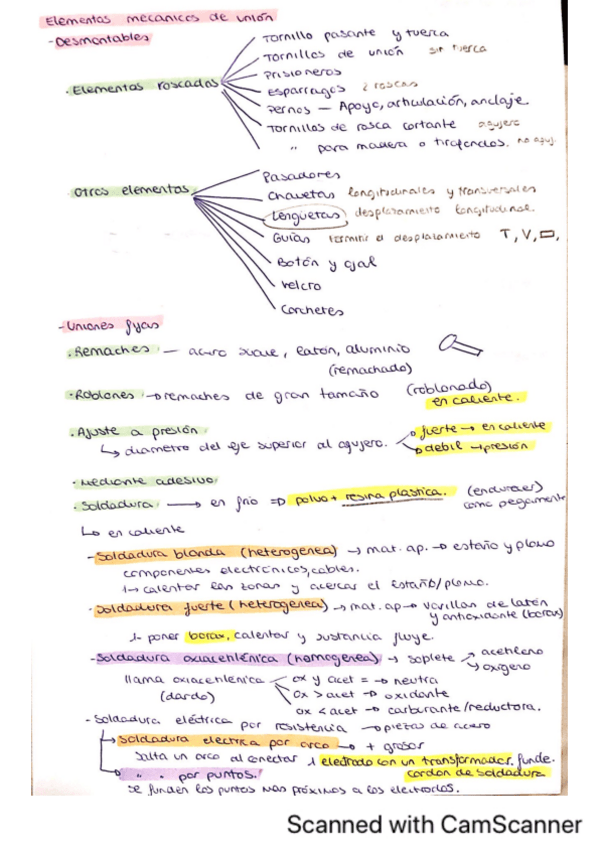 Elementos mecanicos de unión
- Desmontables
Tornillo pasante y tuerca
Tornillos de unión sin tuerca
Prisioneros
· Elementos roscados
Esparragos 2 roscas
Pernos — Apoyo, articulación, anclaje.
Tornillos de rosca cortante agujero
" para madera o tirafondos. no aguj.
Pasadores
· Otros elementos
Chavetas longitudinales y transversales
Lengüetas desplazamiento longitudinal.
Guías Permitir el desplazamiento T, V, ▭,
Botón y ojal
Velcro
Corchetes
- Uniones fijas
· Remaches — acero suave, latón, aluminio
(remachado)
· Roblones → remaches de gran tamaño (roblonado)
en caliente.
· Ajuste a presión
↳ diametro del eje superior al agujero. fuerte → en caliente
debil → presión
· Mediante adesivo
· Soldadura → en frio ⇒ polvo + resina plastica. (endurecer)
como pegamento
↳ en caliente
- Soldadura blanda (heterogenea) → mat. ap. → estaño y plomo
componentes electrónicos, cables.
↳ calentar las zonas y acercar el estaño/plomo.
- Soldadura fuerte (heterogenea) → mat. ap → varillas de latón
y antioxidante (borax)
↳ poner borax, calentar y sustancia fluye.
- Soldadura oxiacetilénica (homogenea) → soplete → acetileno
→ oxigeno
llama oxiacetilénica ox y acet = → neutra
(dardo) ox > acet → oxidante
ox < acet → carburante/reductora.
- Soldadura eléctrica por resistencia → piezas de acero
→ Soldadura electrica por arco → + grosor
Salta un arco al conectar 1 electrodo con un transformador. funde.
cordon de soldadura
→ " " por puntos.
se funden los puntos mas próximos a los electrodos.
Scanned with CamScanner